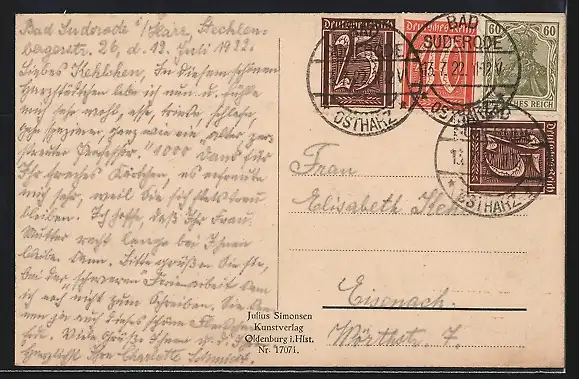 Bad Suderode a/Harz, Stecklen-
bergerstr. 26, d. 12. Juli 1922.
Liebes Kehlchen, In diesem schönen
Harzstädtchen lebe ich nun u. fühle
mich sehr wohl, esse, trinke, schlafe,
gehe spazieren ganz wie ein "alter zer-
streuter Professor." 1000 Dank für
Ihr Kärtchen, es erfreute
mich sehr, weil Sie sich stets treu
bleiben. Ich hoffe, daß Ihr Frau
Mutter recht lange bei Ihnen
bleiben kann. Bitte grüßen Sie sie,
bei der schweren Ferienarbeit kam
ich noch nicht zum Schreiben. Sie
ja auf dieses schöne
Viele Grüße Ihnen
Herzlichst Ihre Charlotte
Deutsches Reich
25
Deutsches Reich
60 60
DEUTSCHES REICH
Deutsches Reich
25
BAD
SUDERODE
13.7.22. 11-12 V.
OSTHARZ
OSTHARZ
OSTHARZ
Frau
Elisabeth
Eisenach.
Wörthstr. 7.
Julius Simonsen
Kunstverlag
Oldenburg i. Hlst.
Nr. 17071.